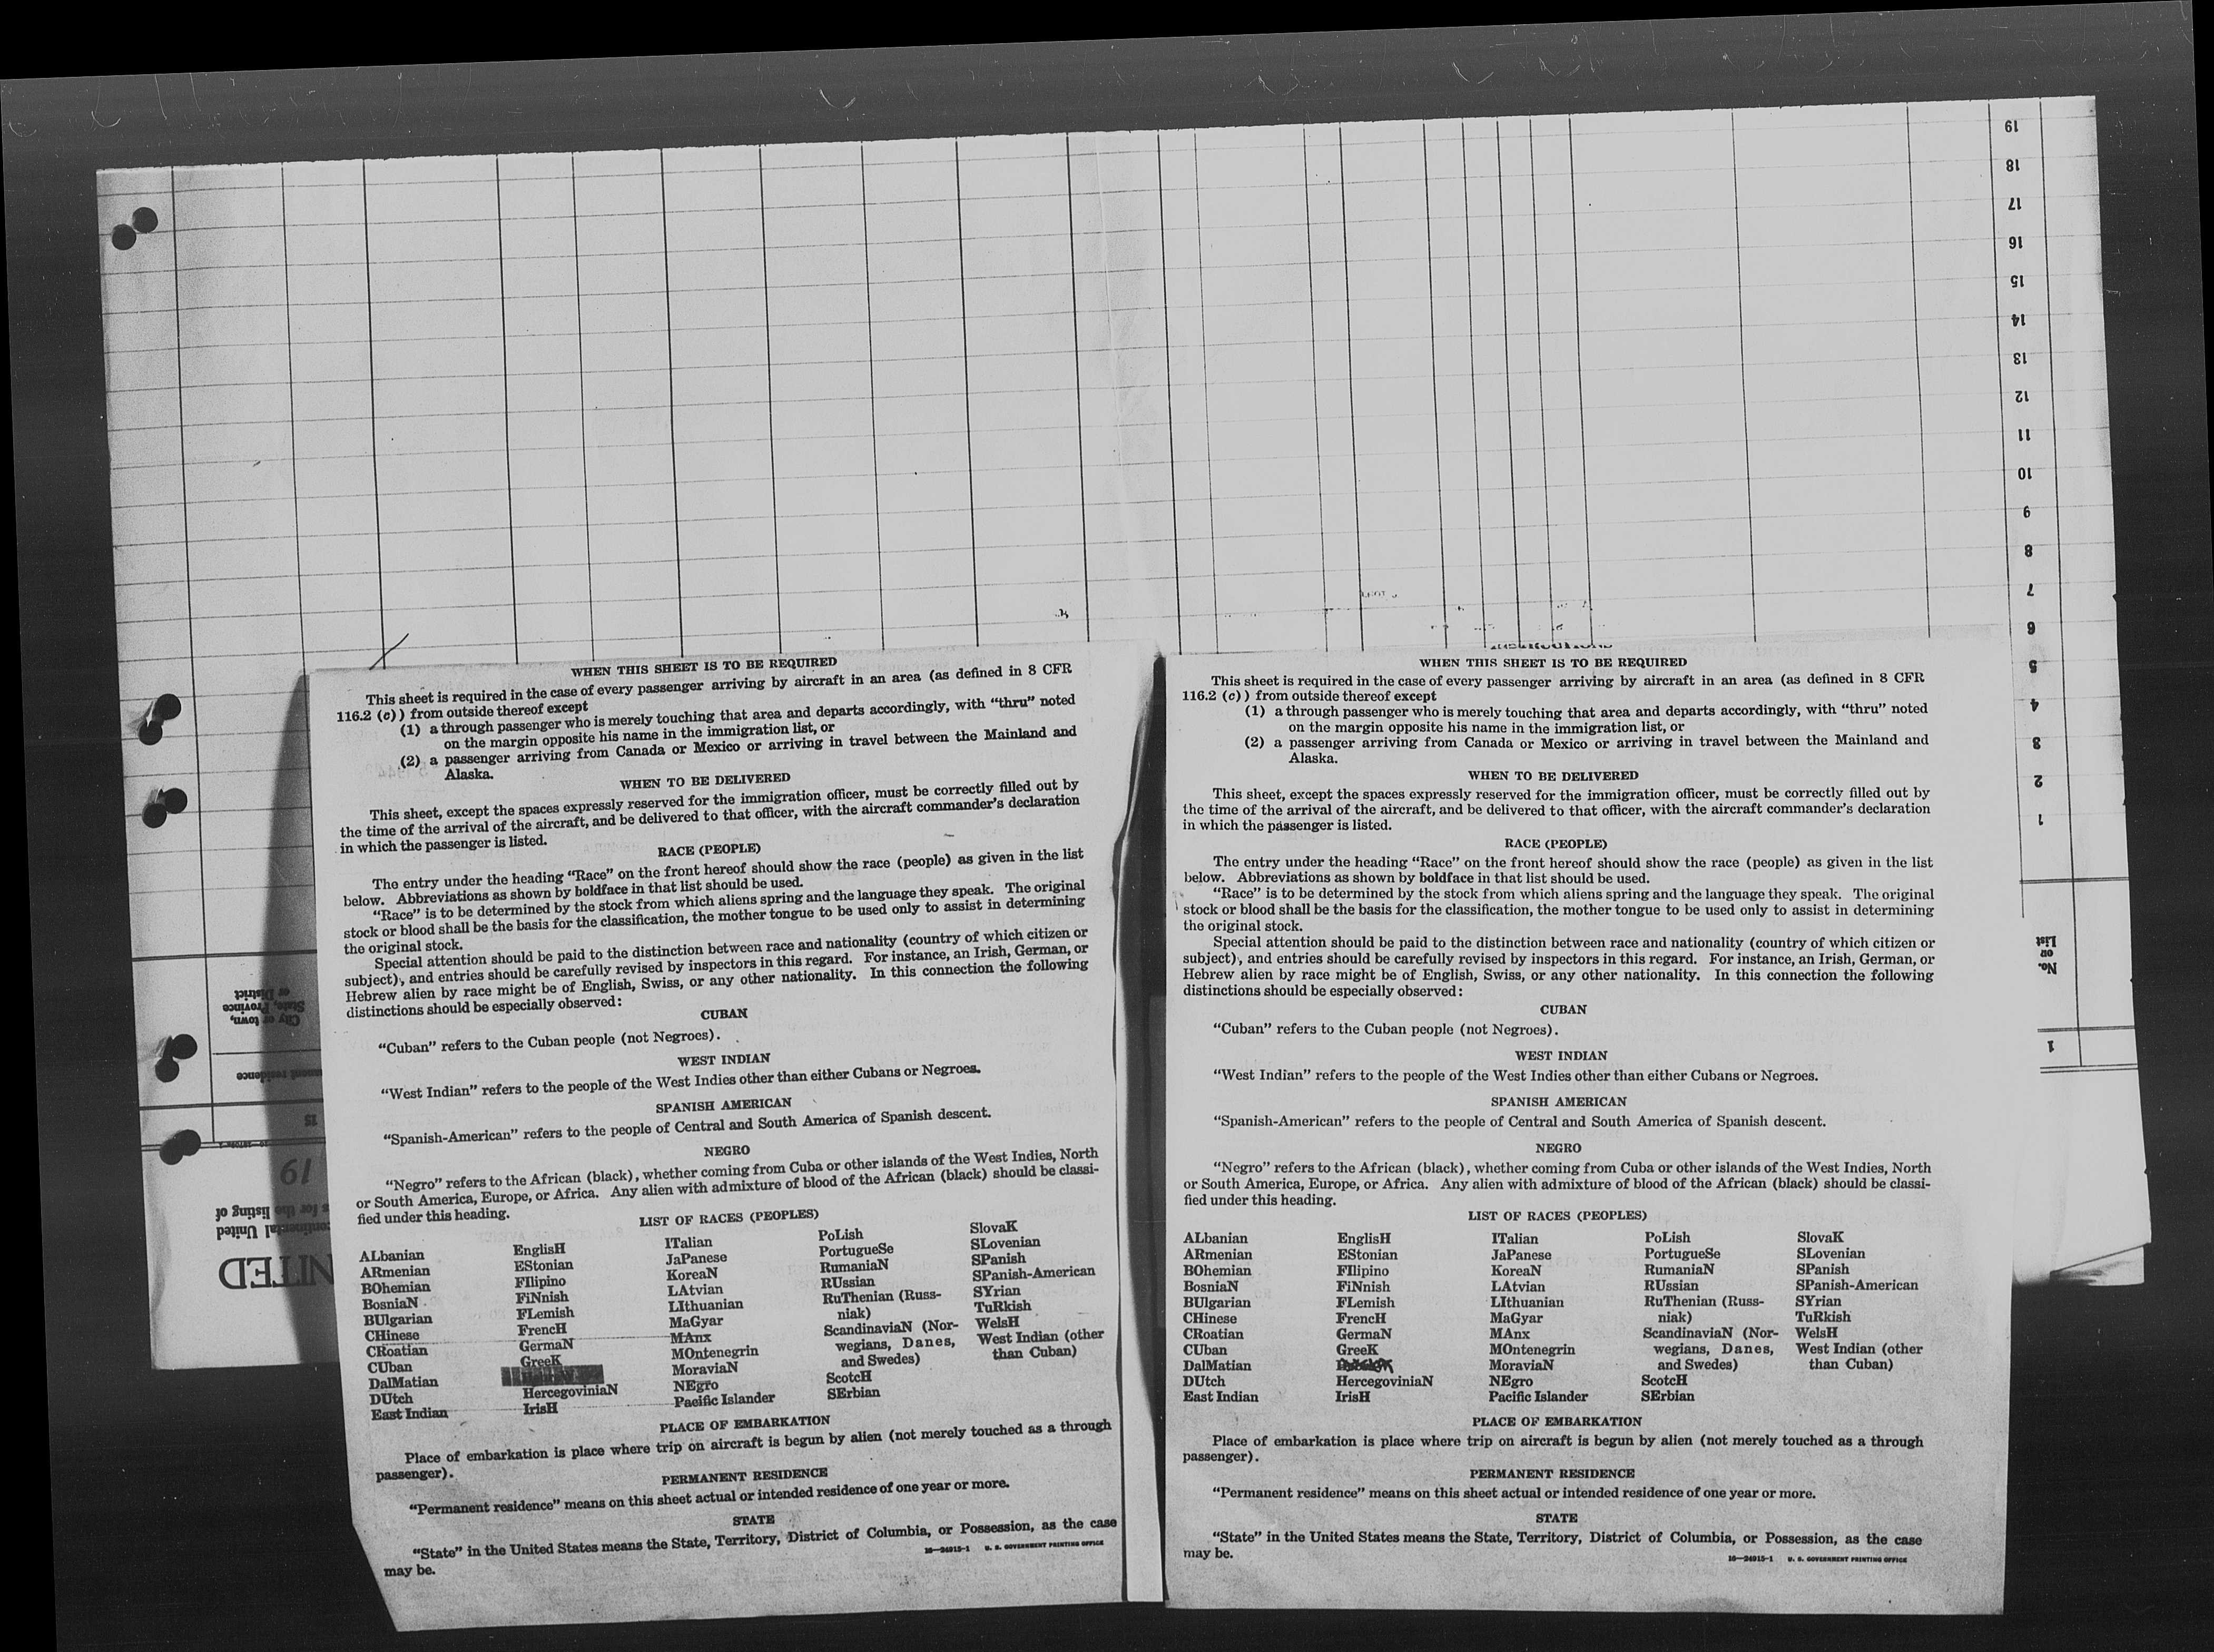 19
18
17
16
15
14
13
12
11
10
9
8
7
6
5
4
3
2
1
No.
on
List
1
City or town,
State, Province
or District
residence
15
19
s for the listing of
United
WHEN THIS SHEET IS TO BE REQUIRED
This sheet is required in the case of every passenger arriving by aircraft in an area (as defined in 8 CFR
116.2 (c)) from outside thereof except
(1) a through passenger who is merely touching that area and departs accordingly, with “thru” noted
on the margin opposite his name in the immigration list, or
(2) a passenger arriving from Canada or Mexico or arriving in travel between the Mainland and
Alaska.
WHEN TO BE DELIVERED
This sheet, except the spaces expressly reserved for the immigration officer, must be correctly filled out by
the time of the arrival of the aircraft, and be delivered to that officer, with the aircraft commander’s declaration
in which the passenger is listed.
RACE (PEOPLE)
The entry under the heading “Race” on the front hereof should show the race (people) as given in the list
below. Abbreviations as shown by boldface in that list should be used.
“Race” is to be determined by the stock from which aliens spring and the language they speak. The original
stock or blood shall be the basis for the classification, the mother tongue to be used only to assist in determining
the original stock.
Special attention should be paid to the distinction between race and nationality (country of which citizen or
subject), and entries should be carefully revised by inspectors in this regard. For instance, an Irish, German, or
Hebrew alien by race might be of English, Swiss, or any other nationality. In this connection the following
distinctions should be especially observed:
CUBAN
“Cuban” refers to the Cuban people (not Negroes).
WEST INDIAN
“West Indian” refers to the people of the West Indies other than either Cubans or Negroes.
SPANISH AMERICAN
“Spanish-American” refers to the people of Central and South America of Spanish descent.
NEGRO
“Negro” refers to the African (black), whether coming from Cuba or other islands of the West Indies, North
or South America, Europe, or Africa. Any alien with admixture of blood of the African (black) should be classi-
fied under this heading.
LIST OF RACES (PEOPLES)
ALbanian
ARmenian
BOhemian
BosniaN
BUlgarian
CHinese
CRoatian
CUban
DalMatian
DUtch
East Indian
EnglisH
EStonian
FIlipino
FiNnish
FLemish
FrencH
GermaN
GreeK
HercegoviniaN
IrisH
ITalian
JaPanese
KoreaN
LAtvian
LIthuanian
MaGyar
MAnx
MOntenegrin
MoraviaN
NEgro
Pacific Islander
PoLish
PortugueSe
RumaniaN
RUssian
RuThenian (Russ-
niak)
ScandinaviaN (Nor-
wegians, Danes,
and Swedes)
ScotcH
SErbian
SlovaK
SLovenian
SPanish
SPanish-American
SYrian
TuRkish
WelsH
West Indian (other
than Cuban)
PLACE OF EMBARKATION
Place of embarkation is place where trip on aircraft is begun by alien (not merely touched as a through
passenger).
PERMANENT RESIDENCE
“Permanent residence” means on this sheet actual or intended residence of one year or more.
STATE
“State” in the United States means the State, Territory, District of Columbia, or Possession, as the case
may be.
16—24915-1 U. S. GOVERNMENT PRINTING OFFICE
WHEN THIS SHEET IS TO BE REQUIRED
This sheet is required in the case of every passenger arriving by aircraft in an area (as defined in 8 CFR
116.2 (c)) from outside thereof except
(1) a through passenger who is merely touching that area and departs accordingly, with “thru” noted
on the margin opposite his name in the immigration list, or
(2) a passenger arriving from Canada or Mexico or arriving in travel between the Mainland and
Alaska.
WHEN TO BE DELIVERED
This sheet, except the spaces expressly reserved for the immigration officer, must be correctly filled out by
the time of the arrival of the aircraft, and be delivered to that officer, with the aircraft commander’s declaration
in which the passenger is listed.
RACE (PEOPLE)
The entry under the heading “Race” on the front hereof should show the race (people) as given in the list
below. Abbreviations as shown by boldface in that list should be used.
“Race” is to be determined by the stock from which aliens spring and the language they speak. The original
stock or blood shall be the basis for the classification, the mother tongue to be used only to assist in determining
the original stock.
Special attention should be paid to the distinction between race and nationality (country of which citizen or
subject), and entries should be carefully revised by inspectors in this regard. For instance, an Irish, German, or
Hebrew alien by race might be of English, Swiss, or any other nationality. In this connection the following
distinctions should be especially observed:
CUBAN
“Cuban” refers to the Cuban people (not Negroes).
WEST INDIAN
“West Indian” refers to the people of the West Indies other than either Cubans or Negroes.
SPANISH AMERICAN
“Spanish-American” refers to the people of Central and South America of Spanish descent.
NEGRO
“Negro” refers to the African (black), whether coming from Cuba or other islands of the West Indies, North
or South America, Europe, or Africa. Any alien with admixture of blood of the African (black) should be classi-
fied under this heading.
LIST OF RACES (PEOPLES)
ALbanian
ARmenian
BOhemian
BosniaN
BUlgarian
CHinese
CRoatian
CUban
DalMatian
DUtch
East Indian
EnglisH
EStonian
FIlipino
FiNnish
FLemish
FrencH
GermaN
GreeK
HercegoviniaN
IrisH
ITalian
JaPanese
KoreaN
LAtvian
LIthuanian
MaGyar
MAnx
MOntenegrin
MoraviaN
NEgro
Pacific Islander
PoLish
PortugueSe
RumaniaN
RUssian
RuThenian (Russ-
niak)
ScandinaviaN (Nor-
wegians, Danes,
and Swedes)
ScotcH
SErbian
SlovaK
SLovenian
SPanish
SPanish-American
SYrian
TuRkish
WelsH
West Indian (other
than Cuban)
PLACE OF EMBARKATION
Place of embarkation is place where trip on aircraft is begun by alien (not merely touched as a through
passenger).
PERMANENT RESIDENCE
“Permanent residence” means on this sheet actual or intended residence of one year or more.
STATE
“State” in the United States means the State, Territory, District of Columbia, or Possession, as the case
may be.
16—24915-1 U. S. GOVERNMENT PRINTING OFFICE